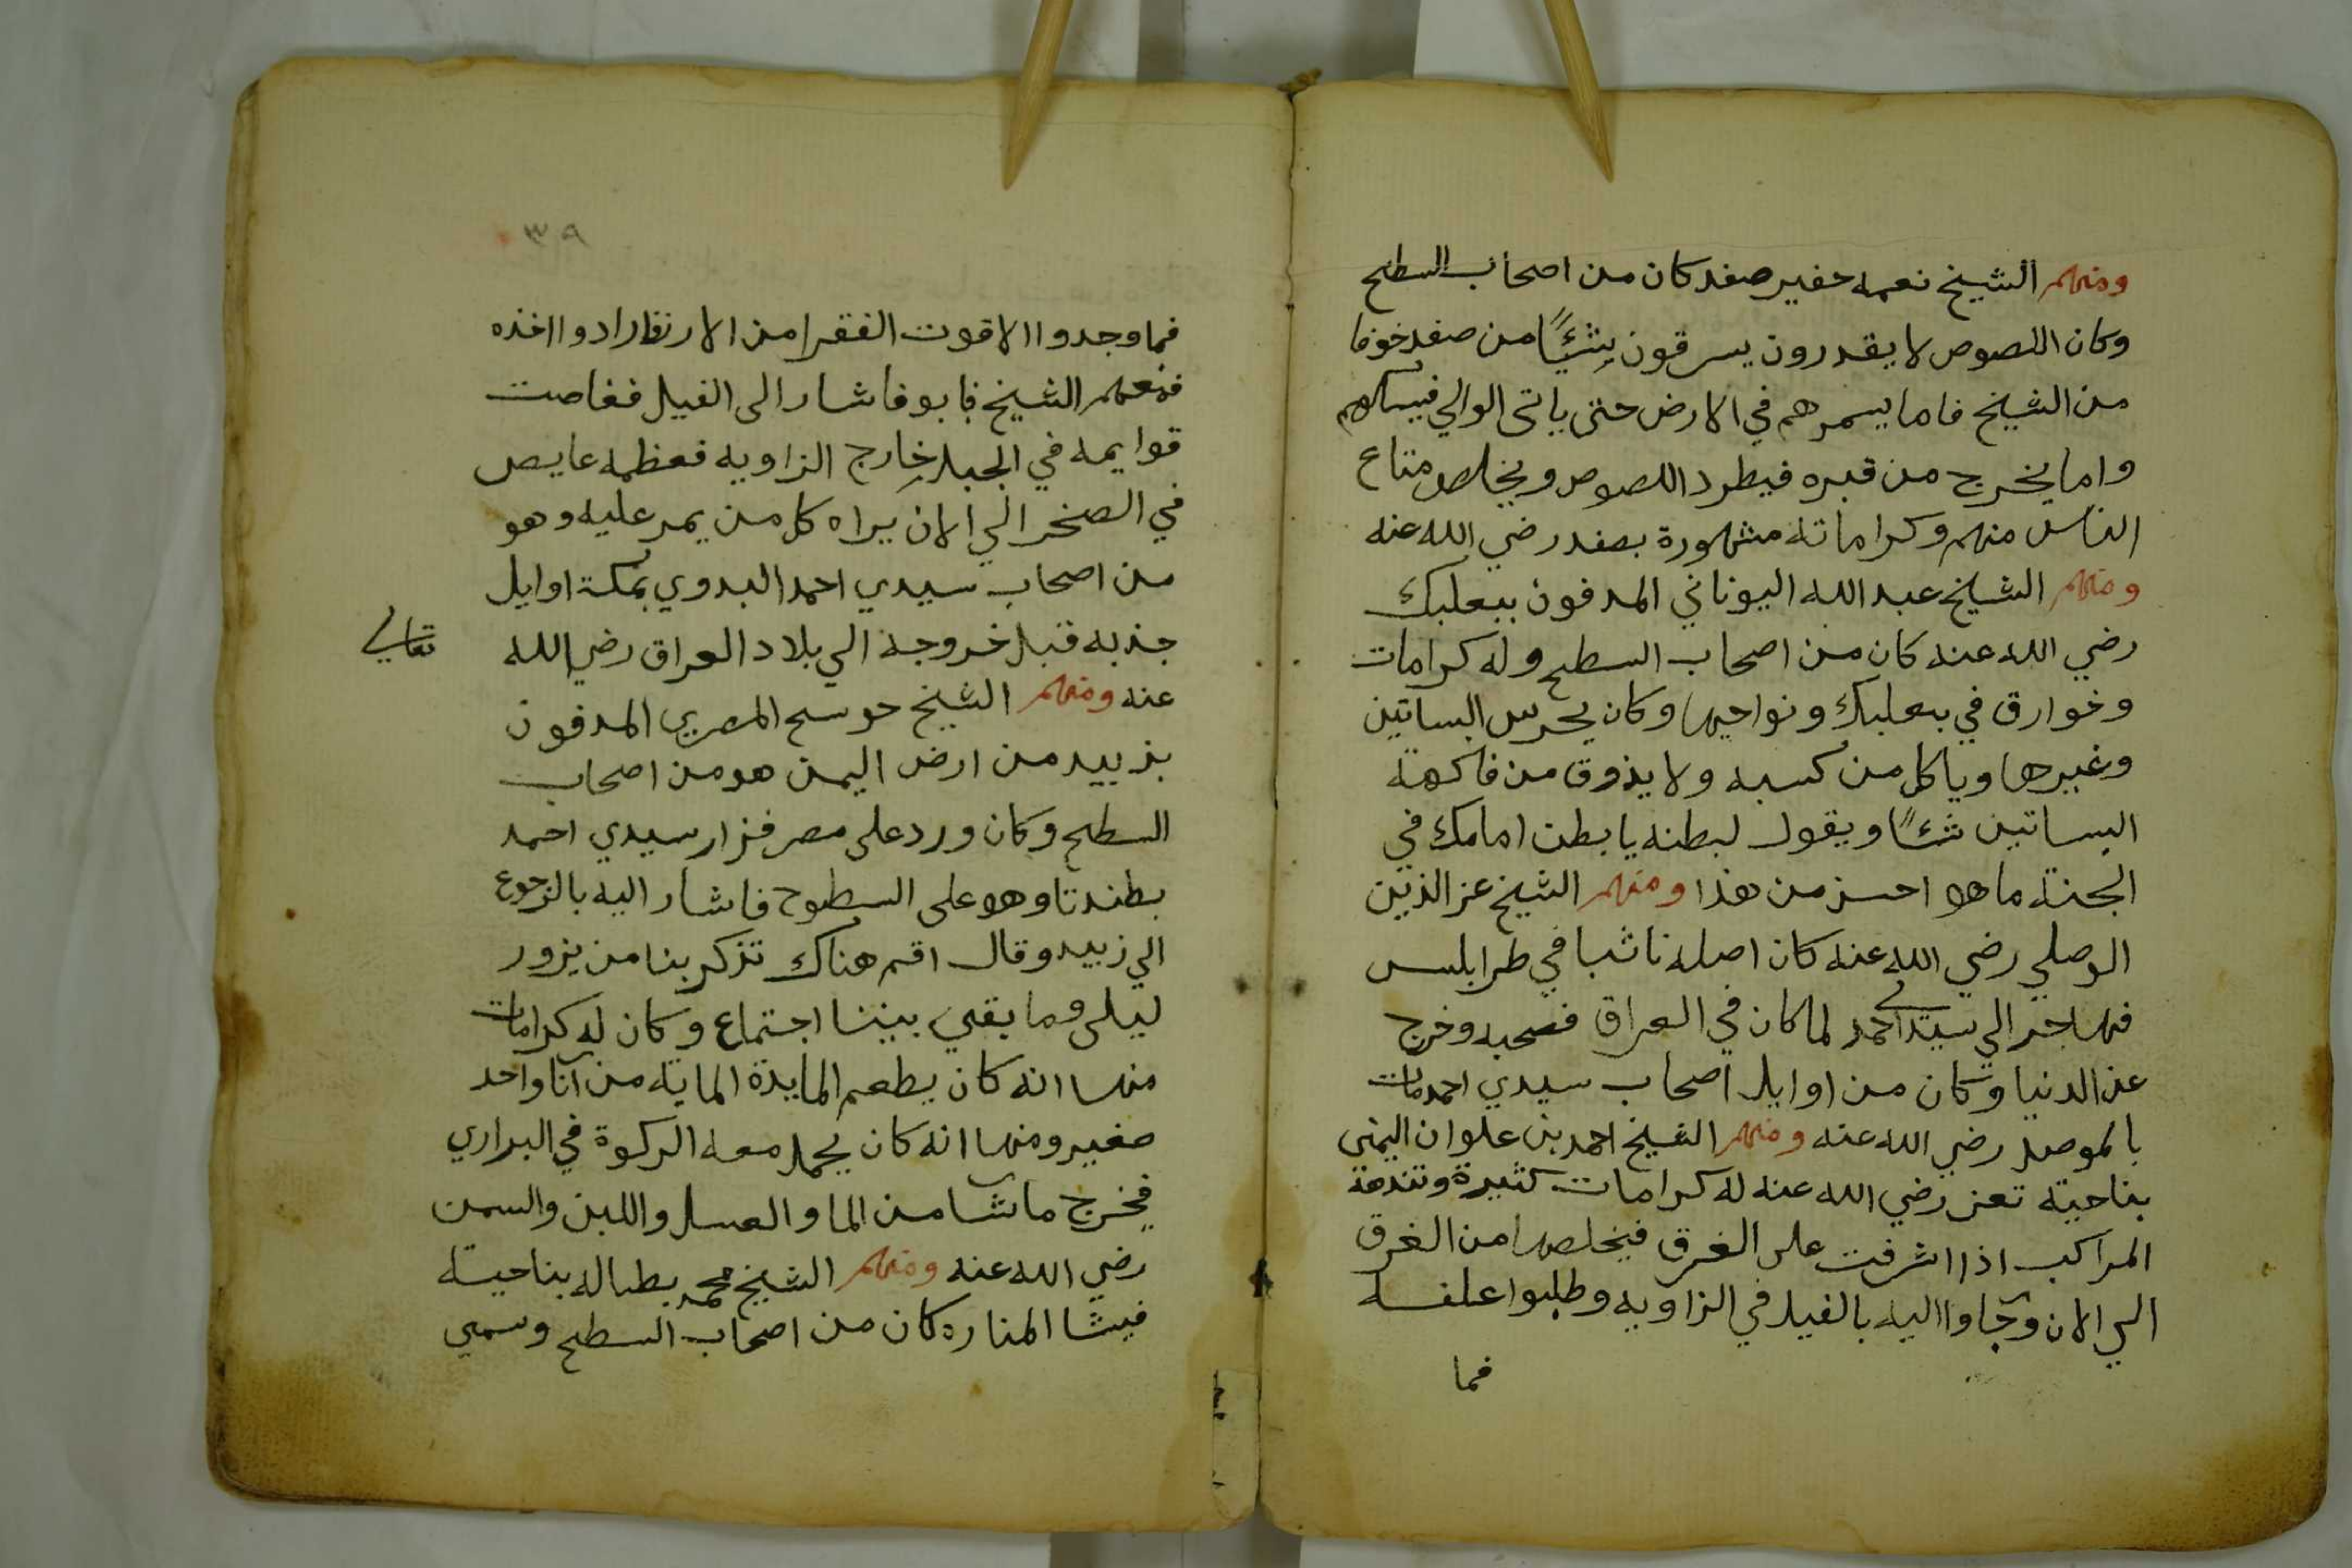 ومنهم الشيخ نعمه خفير صفد كان من اصحاب السطح
وكان اللصوص لا يقدرون يسرقون شئًا من صفد خوفا
من الشيخ فاما يسمرهم في الارض حتى ياتى الوالي فيمسكهم
واما يخرج من قبره فيطرد اللصوص ويخلص متاع
الناس منهم وكراماته مشهورة بصفد رضي الله عنه
ومنهم الشيخ عبد الله اليوناني المدفون ببعلبك
رضي الله عنه كان من اصحاب السطح وله كرامات
وخوارق في بعلبك ونواحيها وكان يحرس البساتين
وغيرها وياكل من كسبه ولا يذوق من فاكهة
البساتين شئًا ويقول لبطنه يا بطن امامك في
الجنة ما هو احسن من هذا ومنهم الشيخ عز الدين
الموصلي رضي الله عنه كان اصله نائبا في طرابلس
فهاجر الي سيدي احمد لما كان في العراق فصحبه وخرج
عن الدنيا وكان من اوايل اصحاب سيدي احمد مات
بالموصل رضي الله عنه ومنهم الشيخ احمد بن علوان اليمنى
بناحية تعز رضي الله عنه له كرامات كثيرة وتندهه
المراكب اذا اشرفت على الغرق فيخلصها من الغرق
الي الان وجاوا اليه بالفيل في الزاويه وطلبوا علفه
فما
٣٩
فما وجدوا الا قوت الفقرا من الارز فارادوا اخذه
فمنعهم الشيخ فابو فاشار الى الفيل فغاصت
قوايمه في الجبل خارج الزاويه فعظمه غايص
في الصخر الي الان يراه كل من يمر عليه وهو
من اصحاب سيدي احمد البدوي بمكة اوايل
جذبه قبل خروجه الي بلاد العراق رضي الله تعالي
عنه ومنهم الشيخ حوسح المصري المدفون
بزبيد من ارض اليمن هو من اصحاب
السطح وكان ورد على مصر فزار سيدي احمد
بطندتا وهو على السطوح فاشار اليه بالرجوع
الي زبيد وقال اقم هناك تذكر بنا من يزور
ليلى وما بقي بيننا اجتماع وكان له كرامات
منها انه كان يطعم المايدة الماية من انا واحد
صغير ومنها انه كان يحمل معه الركوة في البراري
فيخرج ما شا من الما والعسل واللبن والسمن
رضي الله عنه ومنهم الشيخ محمد بطاله بناحية
فيشا المناره كان من اصحاب السطح وسمي